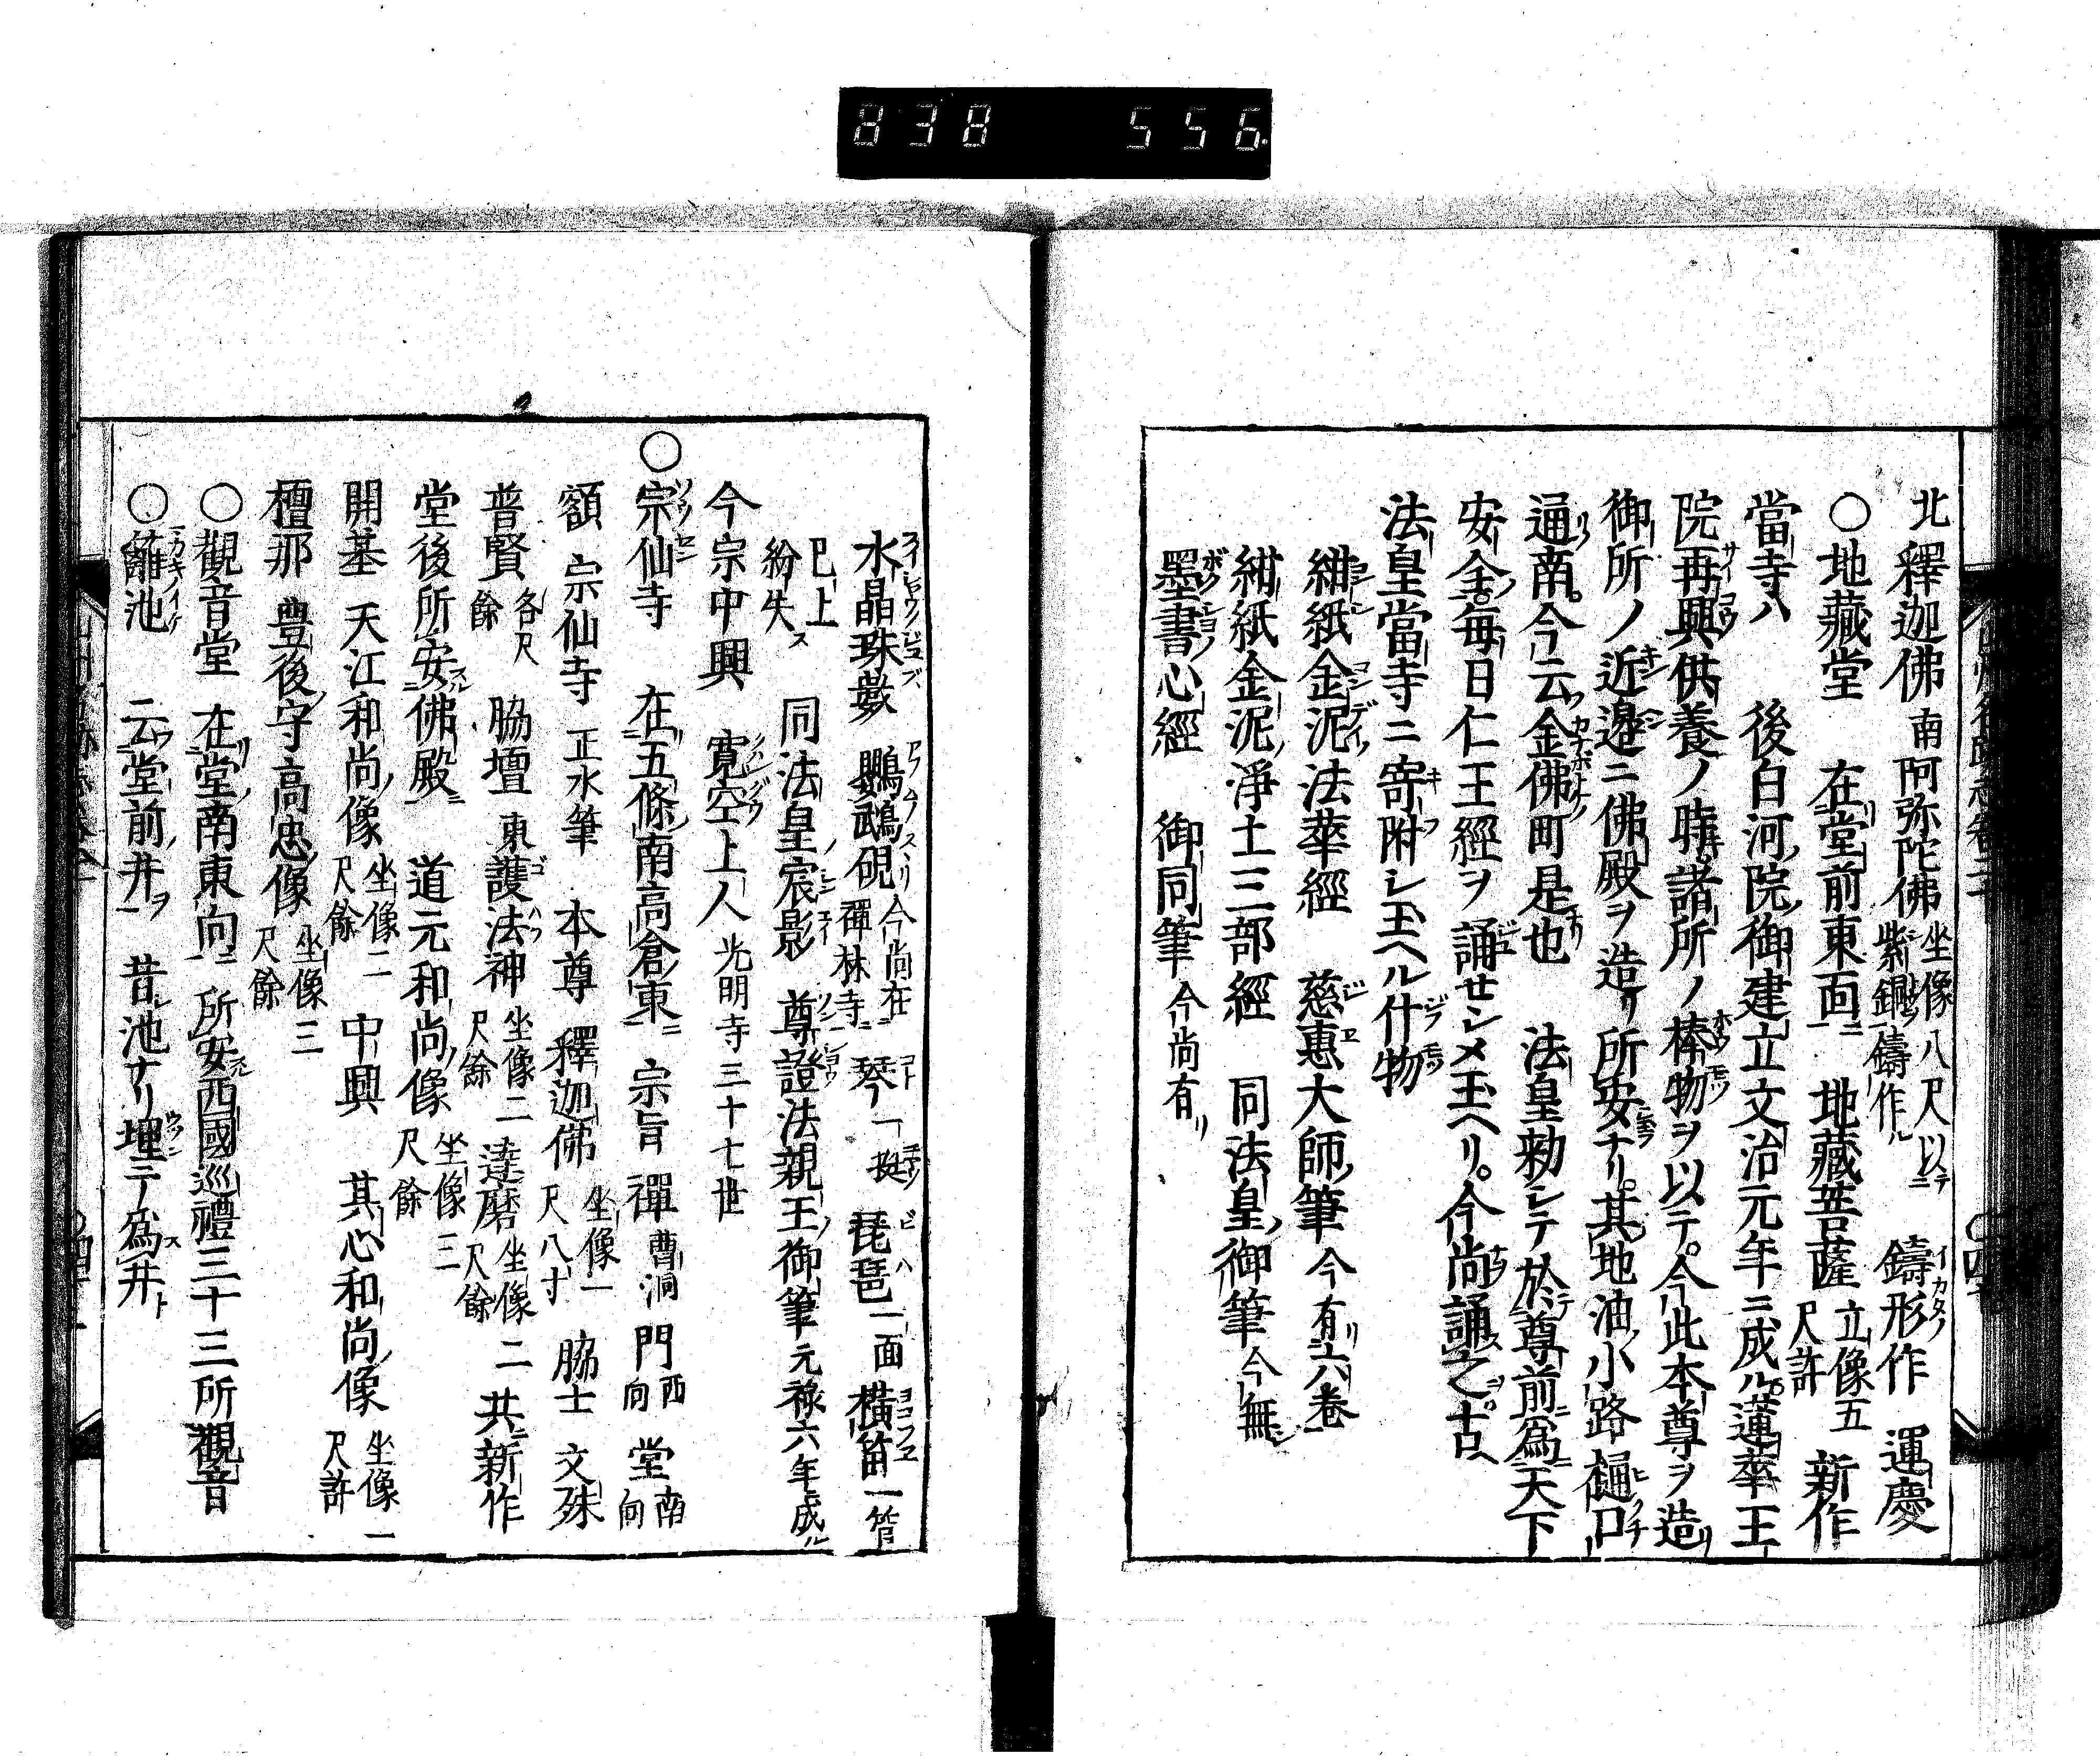 838 556
北釋迦佛 南阿弥陀佛 坐像八尺以テ紫銅鑄作ル 鑄形作 運慶
○地藏堂 在堂前東面 地藏菩薩 立像五尺許 新作
當寺ハ 後白河院御建立文治元年ニ成ル蓮華王
院再興供養ノ時諸所ノ棒物ヲ以テ今此本尊ヲ造リ
御所ノ近邊ニ佛殿ヲ造リ所安ナリ其地油小路樋口
通南今云金佛町是也 法皇勅シテ於尊前爲天下
安全毎日仁王經ヲ誦セシメ玉ヘリ今尚誦之古ヘ
法皇當寺ニ寄附シ玉ヘル什物
紺紙金泥法華經 慈惠大師筆 今有六巻
紺紙金泥淨土三部經 同法皇御筆 今無
墨書心經 御同筆 今尚有リ
水晶珠數 鸚鵡硯 今尚在禪林寺 琴一挺 琵琶一面 横笛一管
已上紛失ス 同法皇宸影 尊證法親王御筆元禄六年成ル
今宗中興 寛空上人 光明寺三十七世
○宗仙寺 在五條南高倉東 宗旨禪 曹洞 門 西向 堂 南向
額 宗仙寺 正水筆 本尊 釋迦佛 坐像一尺八寸 脇士 文殊
普賢 各尺餘 脇壇 東 護法神 坐像二尺餘 達磨 坐像二尺餘 共新作
堂後所安佛殿 道元和尚像 坐像三尺餘
開基 天江和尚像 坐像二尺餘 中興 其心和尚像 坐像一尺許
檀那 豊後守高忠像 坐像三尺餘
○觀音堂 在堂南東向 所安西國巡禮三十三所觀音
○籬池 云堂前井ヲ 昔池ナリ埋テ爲井ト